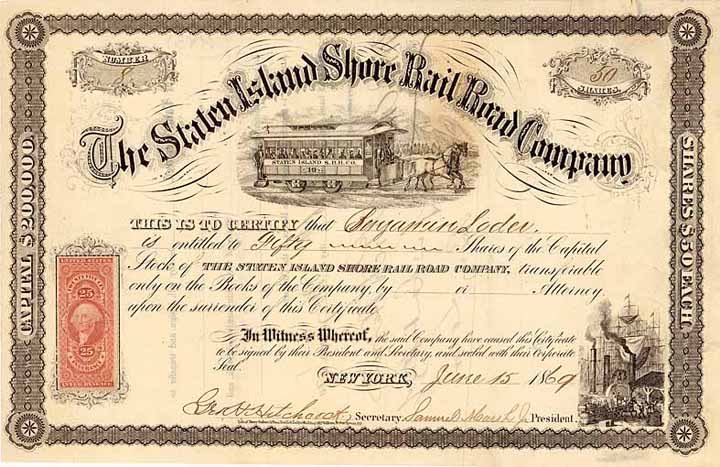 NUMBER
8
50
SHARES.
The Staten Island Shore Rail Road Company
STATEN ISLAND S. R. R. CO.
19
CAPITAL $200,000.
SHARES $50 EACH.
THIS IS TO CERTIFY that Benjamin Loder,
is entitled to Fifty Shares of the Capital
Stock of THE STATEN ISLAND SHORE RAIL ROAD COMPANY, transferable
only on the Books of the Company, by or Attorney
upon the surrender of this Certificate.
25
25
In Witness Whereof, the said Company have caused this Certificate
to be signed by their President and Secretary, and sealed with their Corporate
Seal.
NEW YORK, June 15 1869
Geo. W. Hitchcock Secretary. Samuel Marsh Jr President.